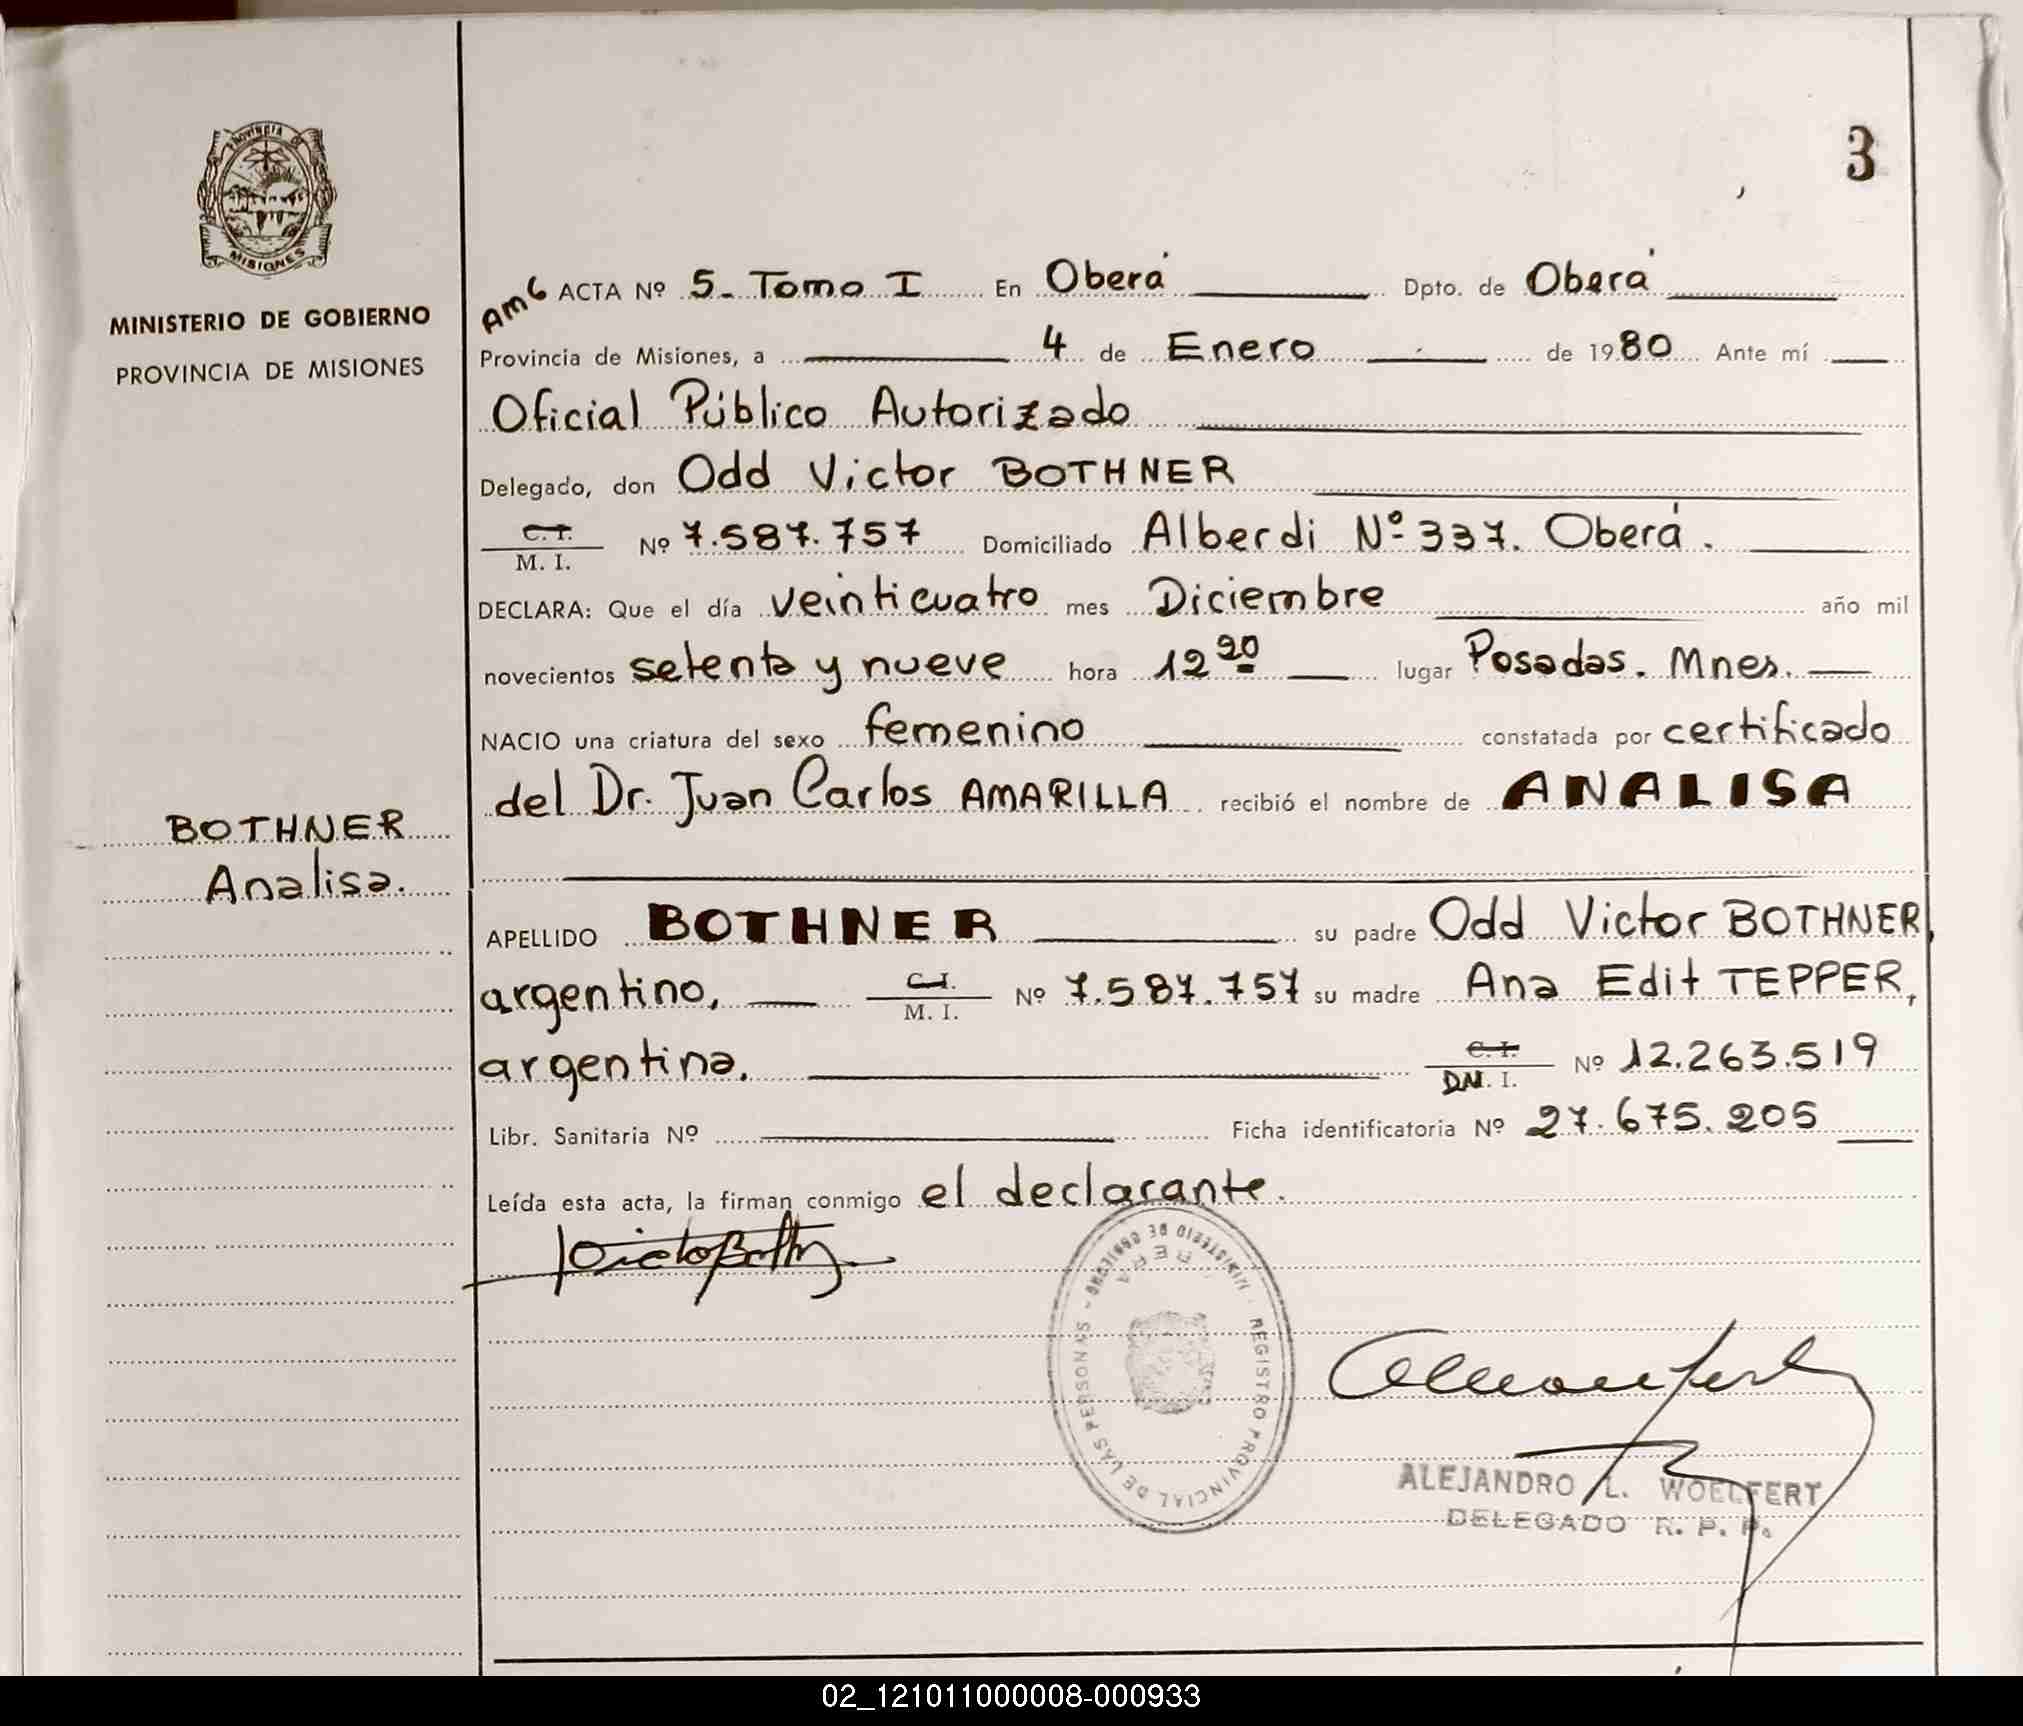 3
PROVINCIA DE
MISIONES
MINISTERIO DE GOBIERNO
PROVINCIA DE MISIONES
ACTA Nº 5. Tomo I En Oberá Dpto. de Oberá
Provincia de Misiones, a 4 de Enero de 1980 Ante mí
Oficial Público Autorizado
Delegado, don Odd Victor BOTHNER
C. I.
M. I. Nº 7.587.757 Domiciliado Alberdi Nº 337. Oberá.
DECLARA: Que el día veinticuatro mes Diciembre año mil
novecientos setenta y nueve hora 12 20 lugar Posadas. Mnes.
NACIO una criatura del sexo femenino constatada por certificado
del Dr. Juan Carlos AMARILLA recibió el nombre de ANALISA
BOTHNER
Analisa.
APELLIDO BOTHNER su padre Odd Victor BOTHNER,
argentino, C. I. M. I. Nº 7.587.757 su madre Ana Edit TEPPER,
argentina. C. I. DN. I. Nº 12.263.519
Libr. Sanitaria Nº Ficha identificatoria Nº 27.675.205
Leída esta acta, la firman conmigo el declarante.
REGISTRO PROVINCIAL DE LAS PERSONAS - MINISTERIO DE GOBIERNO
OBERA
ALEJANDRO L. WOELFERT
DELEGADO R. P. P.
02_121011000008-000933